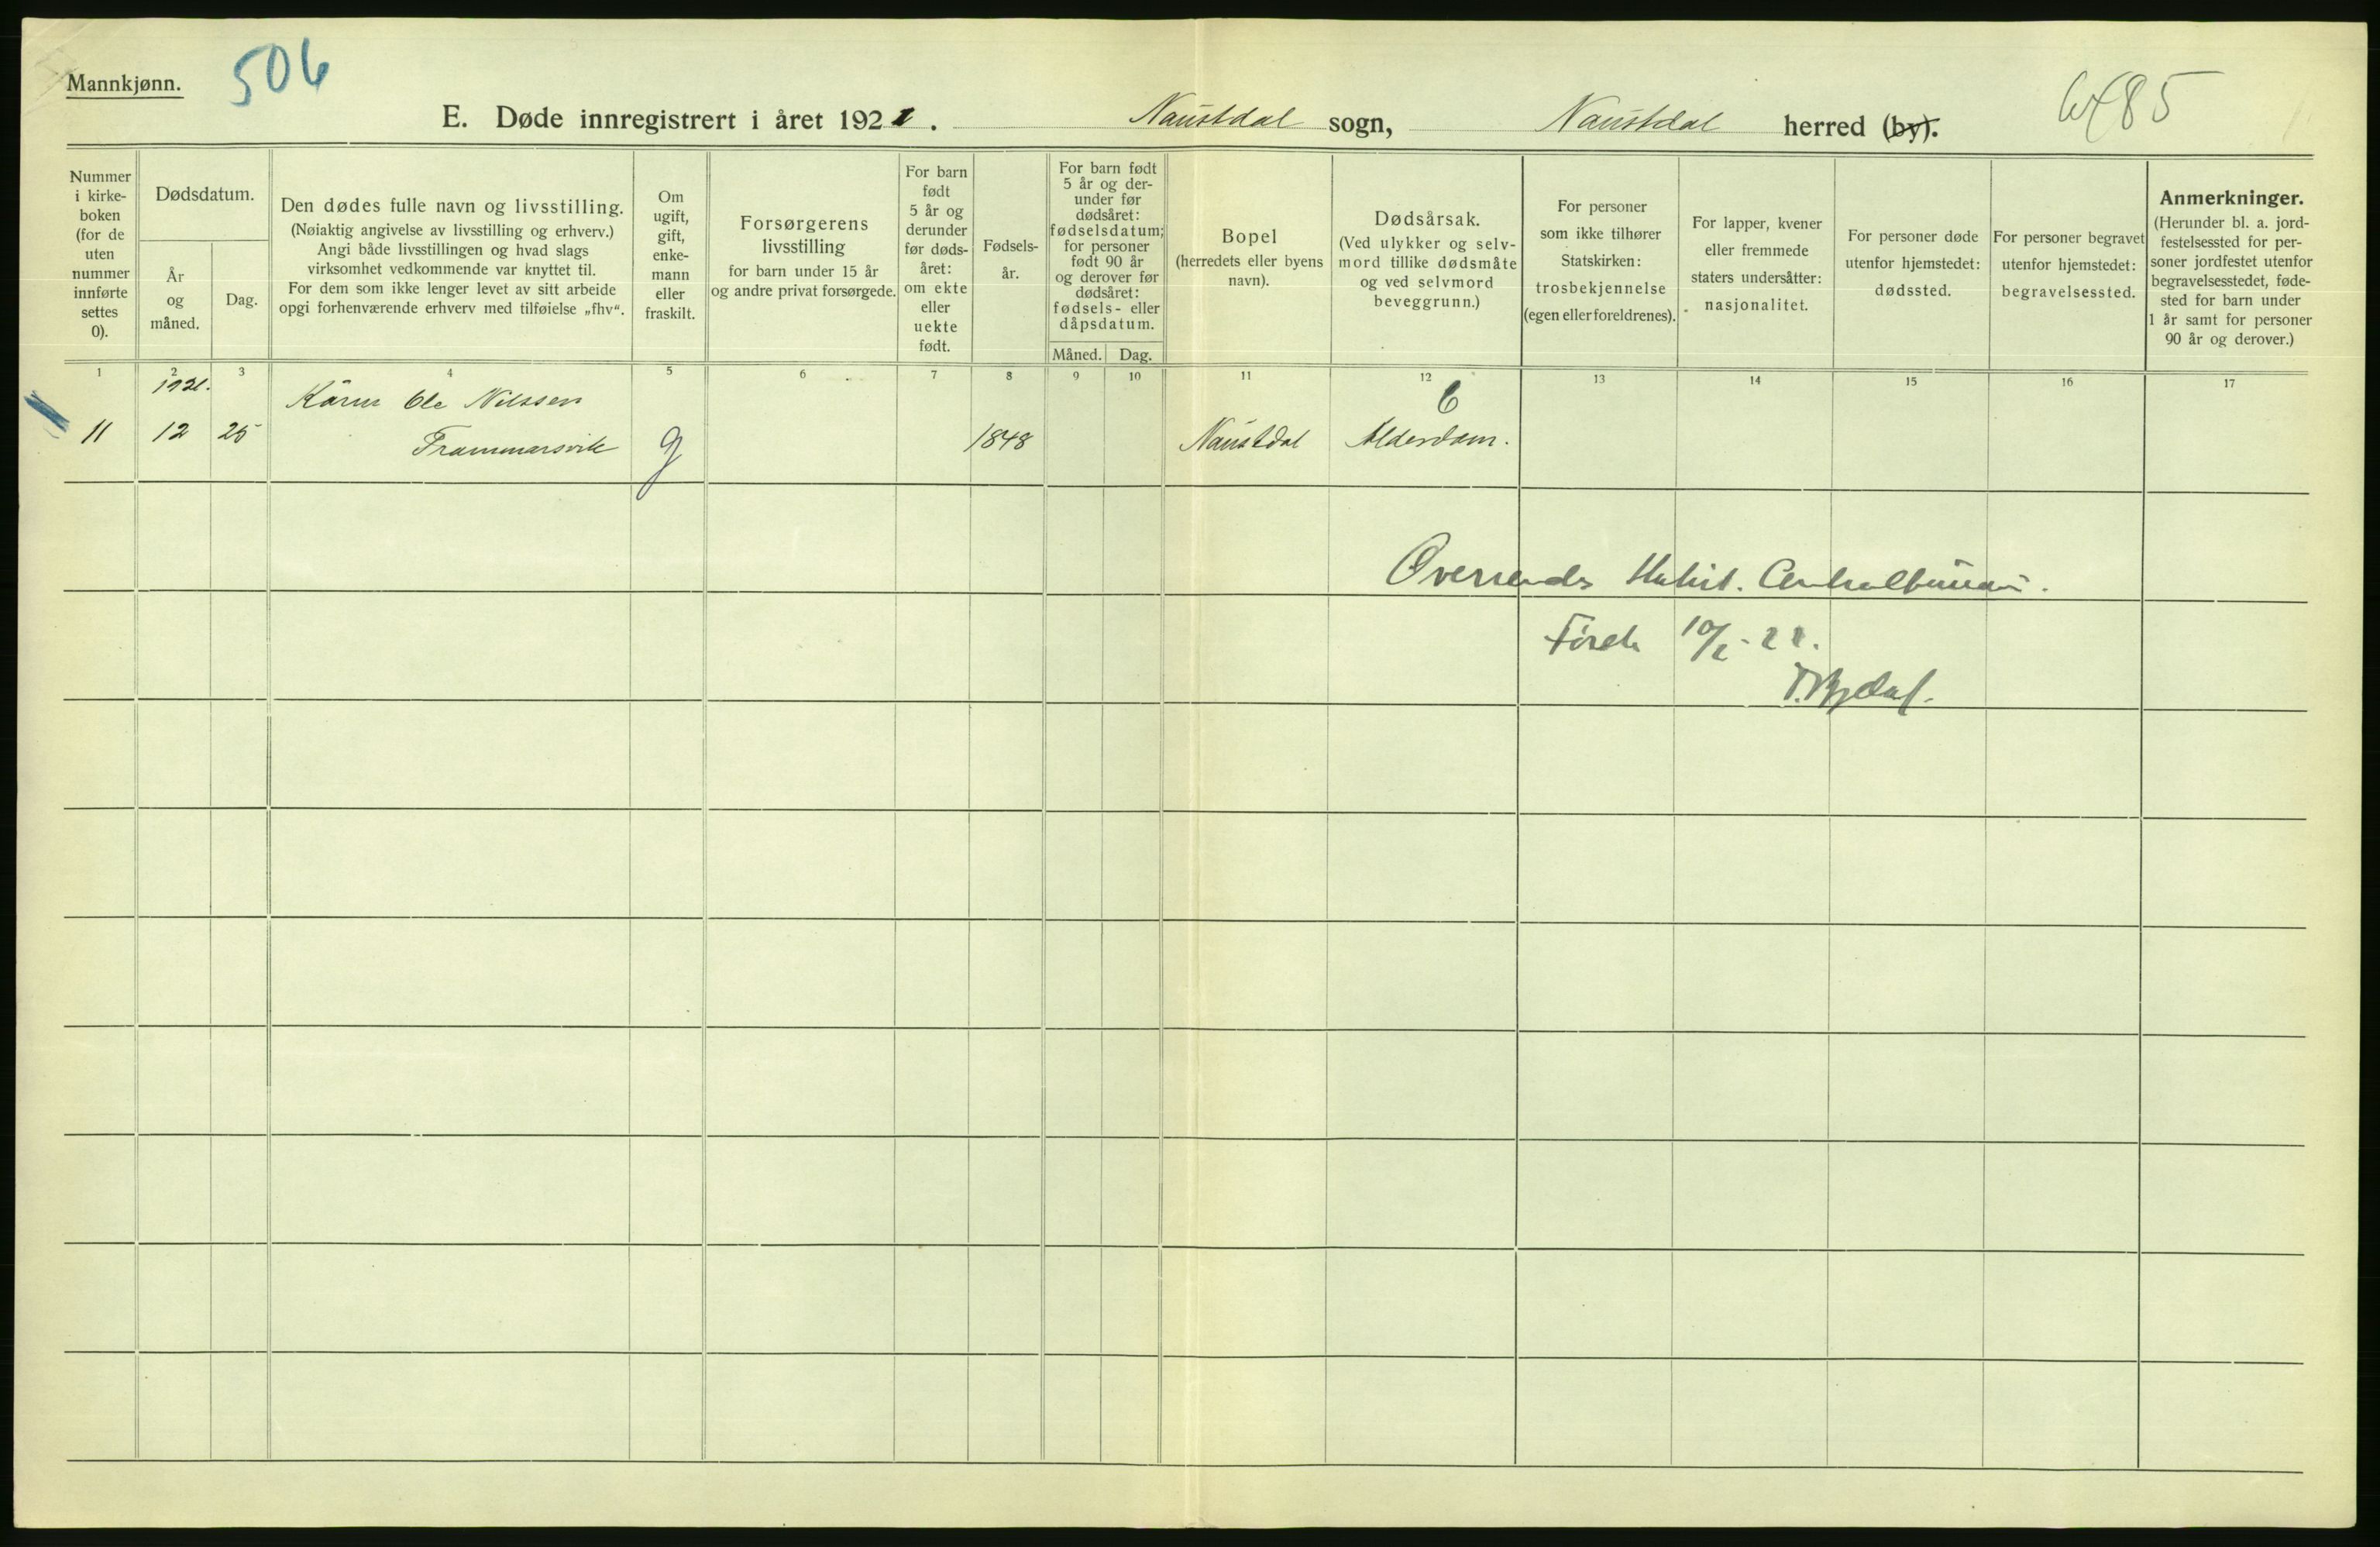 Mannkjønn.
506
E. Døde innregistrert i året 1921. Naustdal sogn, Naustdal herred (by).
Nummer i kirke-boken (for de uten nummer innførte settes 0).
Dødsdatum.
År og måned.
Dag.
Den dødes fulle navn og livsstilling.
(Nøiaktig angivelse av livsstilling og erhverv.)
Angi både livsstillingen og hvad slags
virksomhet vedkommende var knyttet til.
For dem som ikke lenger levet av sitt arbeide
opgi forhenværende erhverv med tilføielse „fhv“.
Om ugift, gift, enke-mann eller fraskilt.
Forsørgerens
livsstilling
for barn under 15 år
og andre privat forsørgede.
For barn født 5 år og derunder før døds-året: om ekte eller uekte født.
Fødsels-år.
For barn født
5 år og der-
under før
dødsåret:
fødselsdatum;
for personer
født 90 år
og derover før
dødsåret:
fødsels- eller
dåpsdatum.
Måned. Dag.
Bopel
(herredets eller byens
navn).
Dødsårsak.
(Ved ulykker og selv-
mord tillike dødsmåte
og ved selvmord
beveggrunn.)
For personer
som ikke tilhører
Statskirken:
trosbekjennelse
(egen eller foreldrenes).
For lapper, kvener
eller fremmede
staters undersåtter:
nasjonalitet.
For personer døde
utenfor hjemstedet:
dødssted.
For personer begravet
utenfor hjemstedet:
begravelsessted.
Anmerkninger.
(Herunder bl. a. jord-
festelsessted for per-
soner jordfestet utenfor
begravelsesstedet, føde-
sted for barn under
1 år samt for personer
90 år og derover.)
1 2 3 4 5 6 7 8 9 10 11 12 13 14 15 16 17
1921. Ole Nilssen 6
11 12 25 Frammarsvik g 1848 Naustdal Alderdom.
Oversendes Statist. Centralbureau.
Førde 10/2-22.